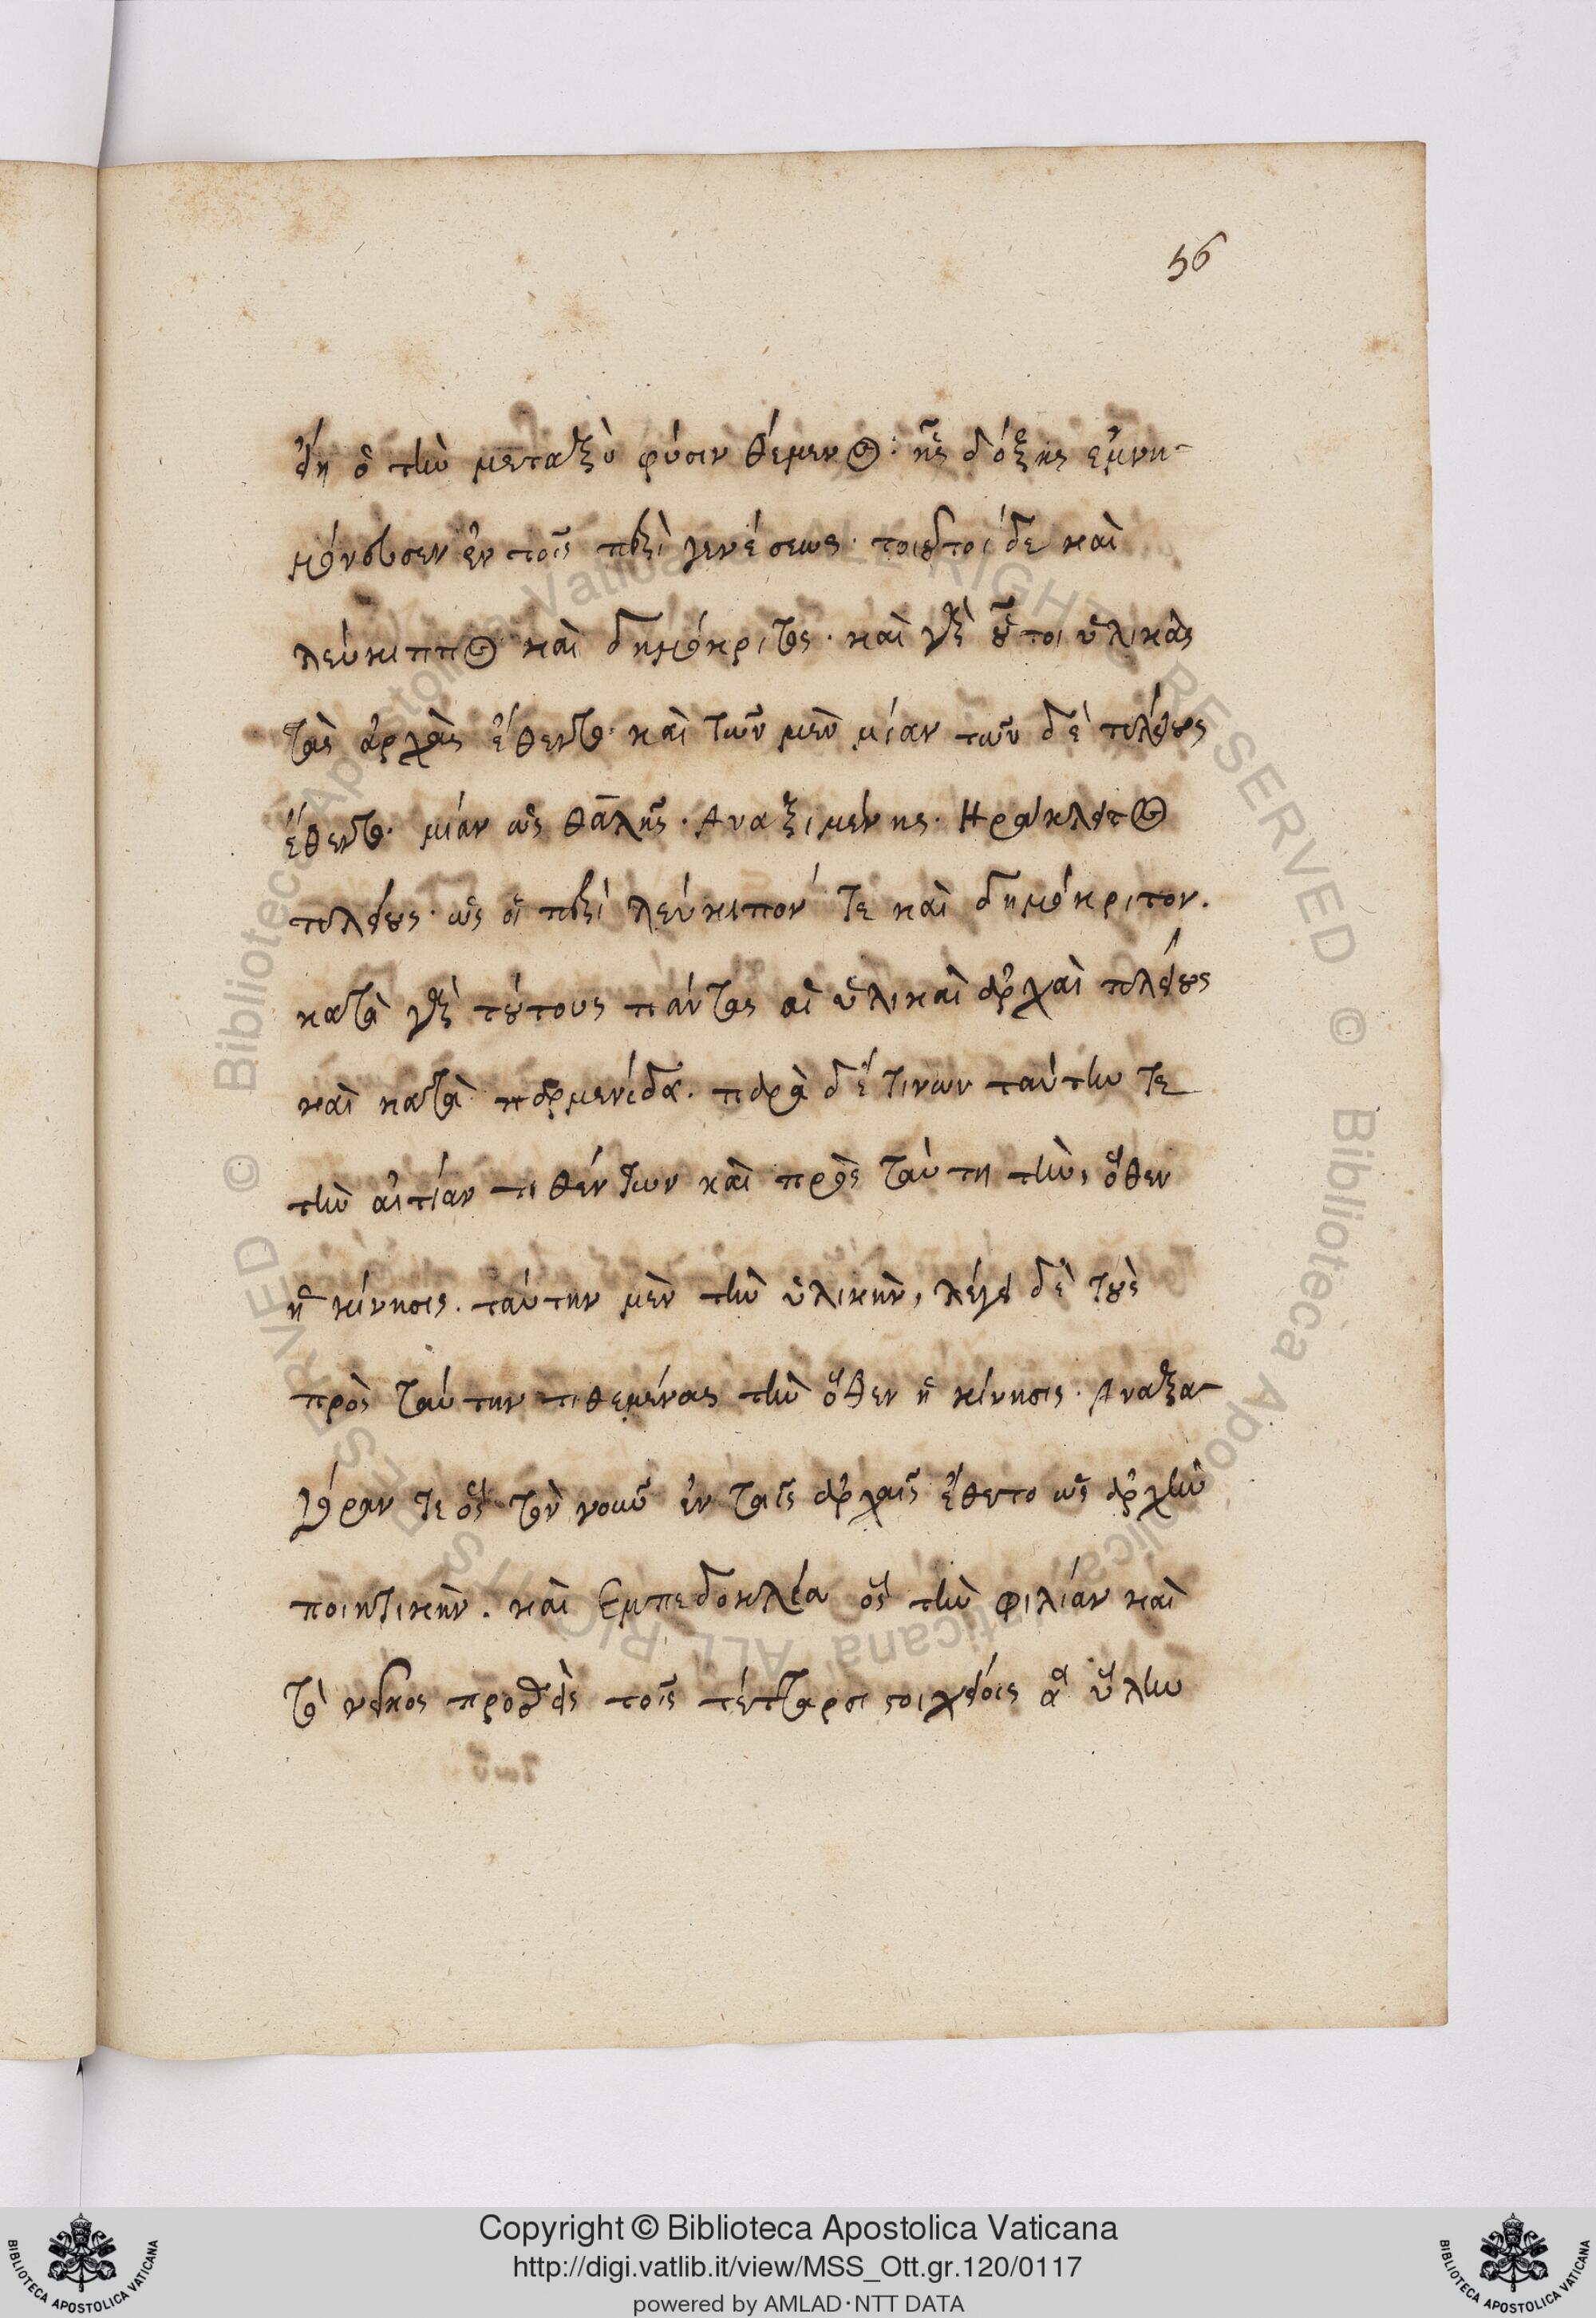 56
εἴη ὁ τὴν μεταξὺ φύσιν θέμενος· ἧς δόξης ἐμνη-
μόνευσεν ἐν τοῖς περὶ γενέσεως· τοιοῦτοι δὲ καὶ
λεύκιππος καὶ δημόκριτος· καὶ γὰρ οὗτοι ὑλικὰς
τὰς ἀρχὰς ἔθεντο· καὶ τῶν μὲν μίαν τῶν δὲ πλείους
ἔθεντο· μίαν ὡς θαλῆς· Αναξιμένης· Ηράκλειτος
πλείους· ὡς οἱ περὶ λεύκιπον τε καὶ δημόκριτον.
κατὰ γὰρ τούτους πάντας αἱ ὑλικαὶ ἀρχαὶ πλείους
καὶ κατὰ παρμενίδα. παρὰ δέ τινων ταύτην τε
τὴν αἰτίαν τιθέντων καὶ πρὸς ταύτη τὴν, ὅθεν
ἡ κίνησις. ταύτην μὲν τὴν ὑλικὴν, λέγει δὲ τοὺς
πρὸς ταύτην τιθεμένας τὴν ὅθεν ἡ κίνησις· Αναξα-
γόραν τε ὃς τὸν νοῦν ἐν ταῖς ἀρχαῖς ἔθετο ὡς ἀρχὴν
ποιητικὴν. καὶ Εμπεδοκλέα ὃς τὴν φιλίαν καὶ
τὸ νεῖκος προσθεὶς τοῖς τέτταρσι στοιχείοις ἃ ὕλην
Copyright © Biblioteca Apostolica Vaticana
http://digi.vatlib.it/view/MSS_Ott.gr.120/0117
powered by AMLAD·NTT DATA
BIBLIOTECA APOSTOLICA VATICANA
BIBLIOTECA APOSTOLICA VATICANA
© Biblioteca Apostolica Vaticana ALL RIGHTS RESERVED
© Biblioteca Apostolica Vaticana ALL RIGHTS RESERVED